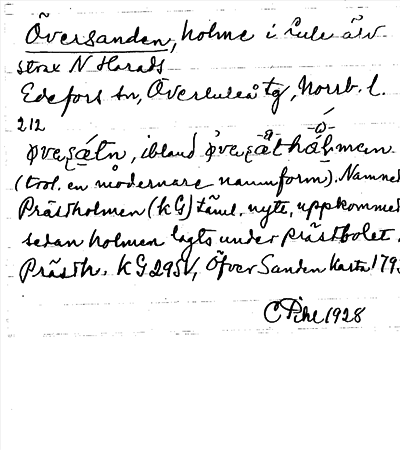 Översanden, holme i Lule älv
strax N Harads
Edefors sn, Överluleå tg, Norrb. l.
212
ibland
(trol. en modernare namnform). Namnet
Prästholmen (KG) täml. nytt, uppkommet
sedan holmen lagts under prästbolet.
Prästh. KG 295V, Öfver Sanden Karta 179
C Pihl 1928